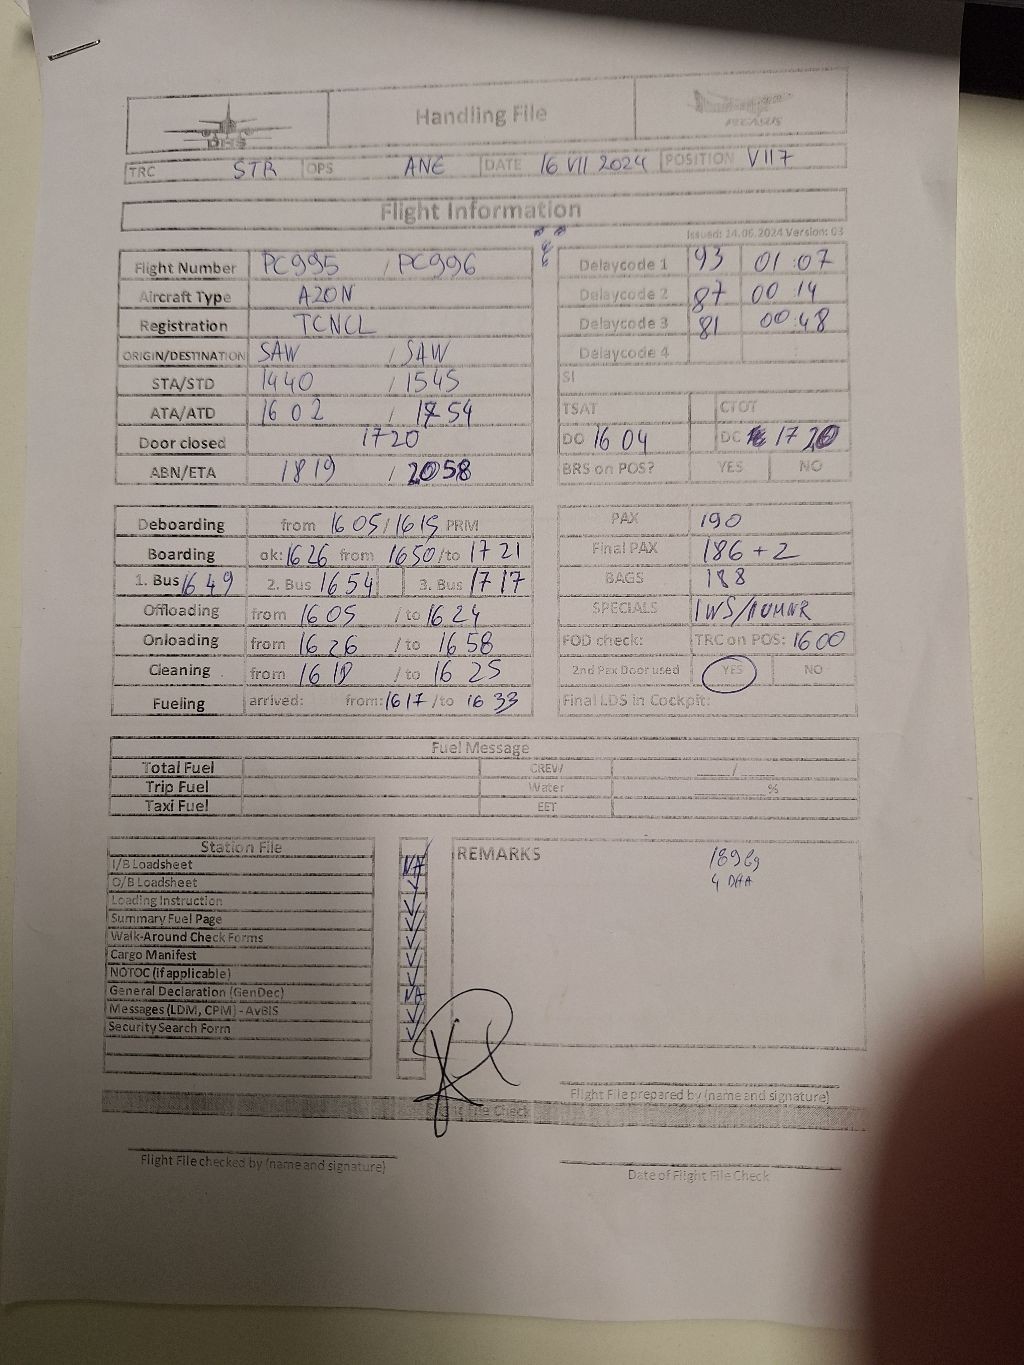 Handling File
DHS
PEGASUS
TRC STR OPS ANE DATE 16 VII 2024 POSITION V117
Flight Information
Issued: 14.06.2024 Version: 03
Flight Number PC995 / PC996
Aircraft Type A20N
Registration TCNCL
ORIGIN/DESTINATION SAW / SAW
STA/STD 1440 / 1545
ATA/ATD 1602 / 1754
Door closed 1720
ABN/ETA 1819 / 2058
Delaycode 1 93 01:07
Delaycode 2 87 00 14
Delaycode 3 81 00:48
Delaycode 4
SI
TSAT CTOT
DO 16 04 DC 17 20
BRS on POS? YES NO
Deboarding from 16 05/1615 PRM
Boarding ok: 1626 from 1650/to 1721
1. Bus 1649 2. Bus 1654 3. Bus 1717
Offloading from 1605 / to 1624
Onloading from 1626 / to 1658
Cleaning from 1619 / to 16 25
Fueling arrived: from: 1617 /to 16 33
PAX 190
Final PAX 186 + 2
BAGS 188
SPECIALS 1WS/1UMNR
FOD check: TRC on POS: 1600
2nd Pax Door used YES NO
Final LDS in Cockpit:
Fuel Message
Total Fuel CREW ____/____
Trip Fuel Water ________%
Taxi Fuel EET
Station File
I/B Loadsheet NA
O/B Loadsheet ✓
Loading Instruction ✓
Summary Fuel Page ✓
Walk-Around Check Forms ✓
Cargo Manifest ✓
NOTOC (if applicable) ✓
General Declaration (GenDec) NA
Messages (LDM, CPM) - AvBIS ✓
Security Search Form ✓
REMARKS
189 bg
4 DAA
Flight File prepared by (name and signature)
Flight File Check
Flight File checked by (name and signature)
Date of Flight File Check